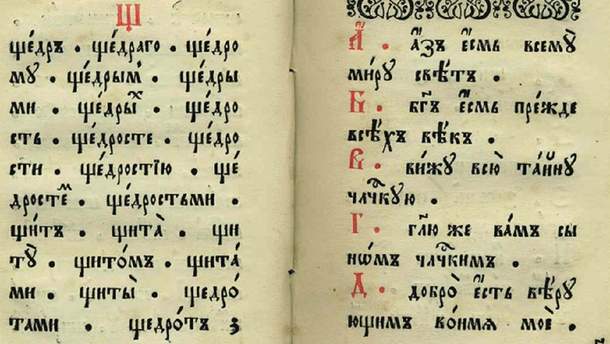 Щ
ще́дръ . ще́драго . ще́дро
му . ще́дрым̾ . ще́дры
ми . ще́дрыⷯ . ще́дро
сть . ще́дросте . ще́дро
сти . ще́дростїю . ще́
дростеⷨ . ще́дростьми .
щи́тъ . щита̀ . щи
тꙋ̀ . щито́мъ . щита́
ми . щиты̀ . щедро́
тами . щедро́тъ з
А҆́ . а҆́зъ є҆́смь всемꙋ̀
ми́рꙋ свѣ́тъ .
Б . бг҃ъ є҆́смь пре́жде
всѣ́хъ вѣ́къ .
В . ви́жꙋ всю̀ та́йнꙋ
члч҃кꙋю .
Г . гл҃ю же ва́мъ сы
нѡ́мъ члч҃кимъ .
Д . добро̀ є҆́сть вѣ́рꙋ
ющимъ во́имѧ моѐ .